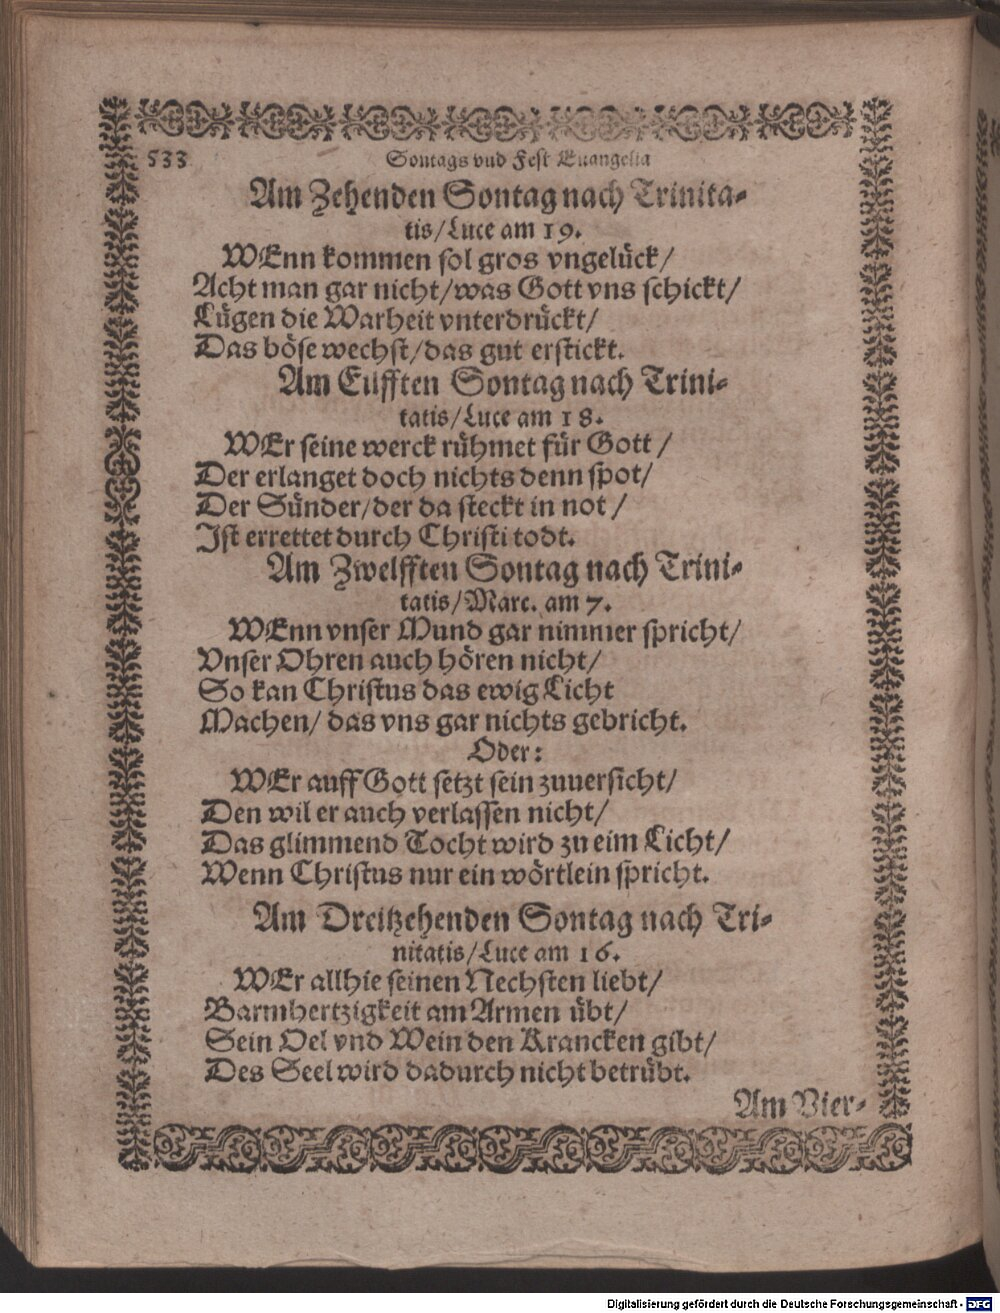 533
Sontags vnd Fest Euangelia
Am Zehenden Sontag nach Trinita-
tis/Luce am 19.
WEnn kommen sol gros vngelück/
Acht man gar nicht/was Gott vns schickt/
Lügen die Warheit vnterdrückt/
Das böse wechst/das gut erstickt.
Am Eilfften Sontag nach Trini-
tatis/Luce am 18.
WEr seine werck rühmet für Gott/
Der erlanget doch nichts denn spot/
Der Sünder/der da steckt in not/
Ist errettet durch Christi todt.
Am Zwelfften Sontag nach Trini-
tatis/Marc. am 7.
WEnn vnser Mund gar nimmer spricht/
Vnser Ohren auch hören nicht/
So kan Christus das ewig Licht
Machen/ das vns gar nichts gebricht.
Oder:
WEr auff Gott setzt sein zuuersicht/
Den wil er auch verlassen nicht/
Das glimmend Tocht wird zu eim Licht/
Wenn Christus nur ein wörtlein spricht.
Am Dreitzehenden Sontag nach Tri-
nitatis/Luce am 16.
WEr allhie seinen Nechsten liebt/
Barmhertzigkeit am Armen übt/
Sein Oel vnd Wein den Krancken gibt/
Des Seel wird dadurch nicht betrübt.
Am Vier-
Digitalisierung gefördert durch die Deutsche Forschungsgemeinschaft - DFG